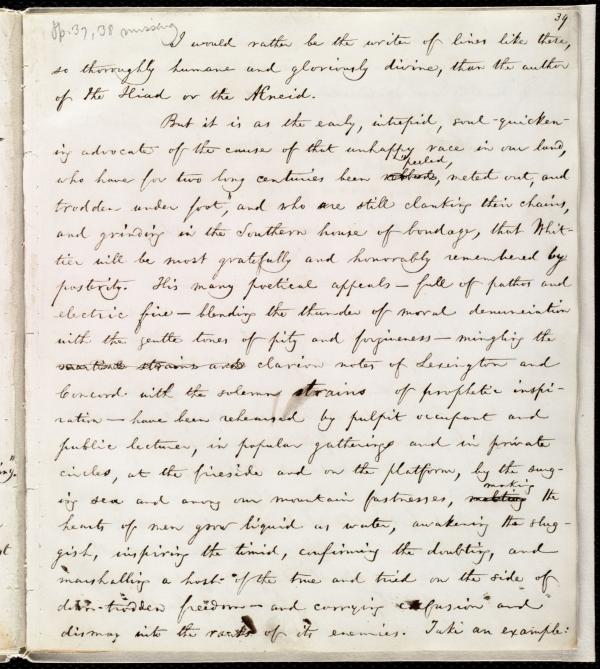 pp. 37, 38 missing
39
I would rather be the writer of lines like these,
so thoroughly humane and gloriously divine, than the author
of the Iliad or the Æneid.
But it is as the early, intrepid, soul-quicken-
ing advocate of the cause of that unhappy race in our land,
peeled,
who have for two long centuries been robbed, meted out, and
trodden under foot, and who are still clanking their chains,
and grinding in the Southern house of bondage, that Whit-
tier will be most gratefully and honorably remembered by
posterity. His many poetical appeals — full of pathos and
electric fire — blending the thunder of moral denunciation
with the gentle tones of pity and forgiveness — mingling the
martial strains and clarion notes of Lexington and
Concord with the solemn strains of prophetic inspi-
ration — have been rehearsed by pulpit occupant and
public lecturer, in popular gatherings and in private
circles, at the fireside and on the platform, by the surg-
making
ing sea and among our mountain fastnesses, melting the
hearts of men grow liquid as water, awakening the slug-
gish, inspiring the timid, confirming the doubting, and
marshalling a host of the true and tried on the side of
down-trodden freedom — and carrying confusion and
dismay into the ranks of its enemies. Take an example:
ing."
st